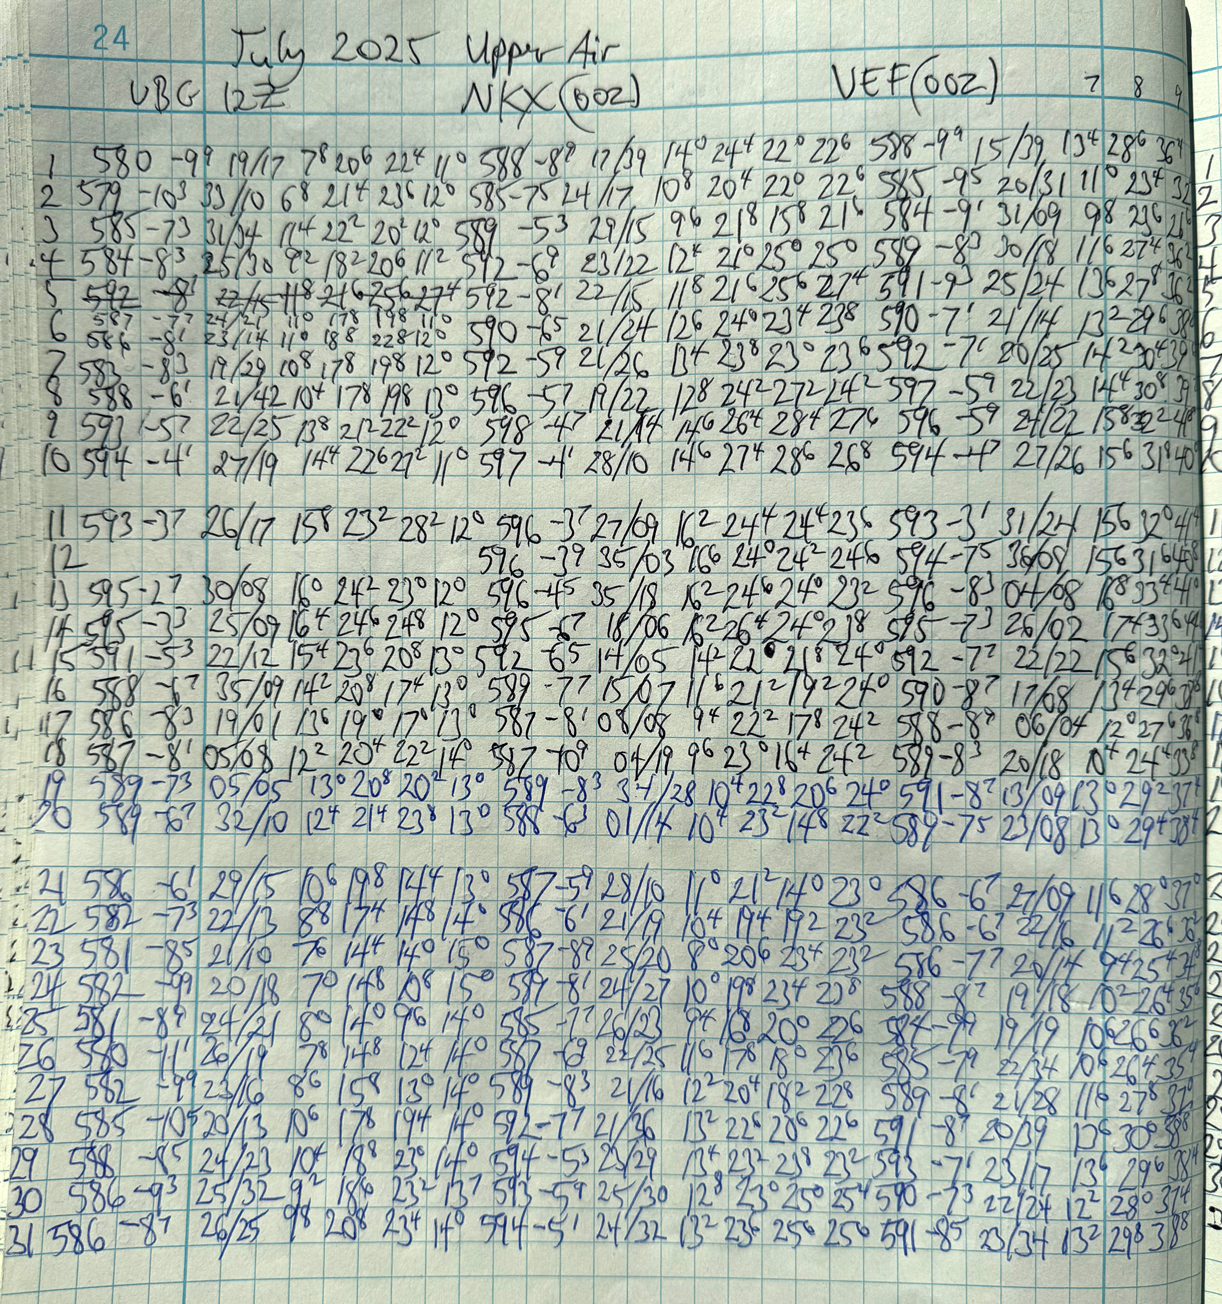 24 July 2025 Upper Air
VBG 12Z NKX(00Z) VEF(00Z) 7 8 9
1 580 -9⁹ 19/17 7⁸ 20⁶ 22⁴ 11⁰ 588 -8⁹ 17/39 14⁰ 24⁴ 22⁰ 22⁶ 588 -9⁹ 15/39 13⁴ 28⁶ 36⁴
2 579 -10³ 33/10 6⁸ 21⁴ 23⁶ 12⁰ 585 -7⁵ 24/17 10⁸ 20⁴ 22⁰ 22⁶ 585 -9⁵ 20/31 11⁰ 23⁴ 32
3 585 -7³ 31/34 11⁴ 22² 20² 12⁰ 589 -5³ 29/15 9⁶ 21⁸ 15⁸ 21⁶ 584 -9¹ 31/09 9⁸ 23⁶
4 584 -8³ 25/30 9² 18² 20⁶ 11² 592 -6⁹ 23/22 12⁴ 21⁰ 25⁰ 25⁰ 589 -8³ 30/18 11⁶ 27⁴ 36²
5 592 -8¹ 22/15 11⁸ 21⁶ 25⁶ 27⁴ 592 -8¹ 22/15 11⁸ 21⁶ 25⁶ 27⁴ 591 -9³ 25/24 13⁶ 27⁸ 36²
587 -7⁷ 24/21 11⁰ 17⁸ 19⁸ 11⁰
6 586 -8¹ 23/14 11⁰ 18⁸ 22⁸ 12⁰ 590 -6⁵ 21/24 12⁶ 24⁰ 23⁴ 23⁸ 590 -7¹ 21/14 13² 29⁶ 38
7 583 -8³ 19/29 10⁸ 17⁸ 19⁸ 12⁰ 592 -5⁹ 21/26 13⁴ 23⁸ 23⁰ 23⁶ 592 -7¹ 20/25 14² 30⁴ 39
8 588 -6¹ 21/42 10⁴ 17⁸ 19⁸ 13⁰ 596 -5⁷ 19/22 12⁸ 24² 27² 24² 597 -5⁹ 22/23 14⁴ 30⁸ 39
9 593 -5⁷ 22/25 13⁸ 21² 22² 12⁰ 598 -4⁷ 21/14 14⁶ 26⁴ 28⁴ 27⁶ 596 -5⁹ 24/22 15⁸ 32² 41⁸
10 594 -4¹ 27/19 14⁴ 22⁶ 27² 11⁰ 597 -4¹ 28/10 14⁶ 27⁴ 28⁶ 26⁸ 594 -4⁷ 27/26 15⁶ 31⁸ 40
11 593 -3⁷ 26/17 15⁸ 23² 28² 12⁰ 596 -3⁷ 27/09 16² 24⁴ 24⁴ 23⁶ 593 -3¹ 31/24 15⁶ 32⁰ 41⁴
12 596 -3⁹ 35/03 16⁶ 24⁰ 24² 24⁶ 594 -7⁵ 36/08 15⁶ 31⁶ 40⁸
13 595 -2⁷ 30/08 16⁰ 24² 23⁰ 12⁰ 596 -4⁵ 35/18 16² 24⁶ 24⁰ 23² 596 -8³ 04/08 16⁸ 33⁴ 41⁰
14 595 -3³ 25/09 16⁴ 24⁶ 24⁸ 12⁰ 595 -6⁷ 18/06 16² 26⁴ 24⁰ 23⁸ 595 -7³ 26/02 17⁴ 33⁶ 44
15 591 -5³ 22/12 15⁴ 23⁶ 20⁸ 13⁰ 592 -6⁵ 14/05 14² 22⁰ 21⁸ 24⁰ 592 -7⁷ 22/22 15⁶ 32⁰ 41
16 588 -6⁷ 35/09 14² 20⁸ 17⁴ 13⁰ 589 -7⁷ 15/07 11⁶ 21² 19² 24⁰ 590 -8⁷ 17/08 13⁴ 29⁶ 38⁸
17 586 -8³ 19/01 13⁶ 19⁰ 17⁰ 13⁰ 587 -8¹ 08/08 9⁴ 22² 17⁸ 24² 588 -8⁹ 06/04 12⁰ 27⁶ 36⁸
18 587 -8¹ 05/08 12² 20⁴ 22² 14⁰ 587 -10⁹ 04/19 9⁶ 23⁰ 16⁴ 24² 589 -8³ 20/18 10⁴ 24⁴ 33⁸
19 589 -7³ 05/05 13⁰ 20⁸ 20² 13⁰ 589 -8³ 34/28 10⁴ 22⁸ 20⁶ 24⁰ 591 -8⁷ 13/09 13⁰ 29² 37⁴
20 589 -6⁷ 32/10 12⁴ 21⁴ 23⁸ 13⁰ 588 -6³ 01/14 10⁴ 23² 14⁸ 22² 589 -7⁵ 23/08 13⁰ 29⁴ 38⁴
21 586 -6¹ 29/15 10⁶ 19⁸ 14⁴ 13⁰ 587 -5⁹ 28/10 11⁰ 21² 14⁰ 23⁰ 586 -6⁷ 27/09 11⁶ 28⁰ 37⁰
22 582 -7³ 22/13 8⁸ 17⁴ 14⁸ 14⁰ 586 -6¹ 21/19 10⁴ 19⁴ 19² 23² 586 -6⁷ 22/16 11² 26⁶ 36²
23 581 -8⁵ 21/10 7⁶ 14⁴ 14⁰ 15⁰ 587 -8⁹ 25/20 8⁰ 20⁶ 23⁴ 23² 586 -7⁷ 20/14 9⁴ 25⁴ 34⁸
24 582 -9⁹ 20/18 7⁰ 14⁸ 10⁸ 15⁰ 589 -8¹ 24/27 10⁰ 19⁸ 23⁴ 23⁸ 588 -8⁷ 19/18 10² 26⁴ 35⁶
25 581 -8⁹ 24/21 8⁰ 14⁰ 9⁶ 14⁰ 585 -7⁷ 26/23 9⁴ 16⁸ 20⁰ 22⁶ 584 -9⁹ 19/19 10⁶ 26⁶ 36²
26 580 -11¹ 26/19 7⁸ 14⁸ 12⁴ 14⁰ 587 -6⁹ 22/25 11⁶ 17⁸ 18⁰ 23⁶ 585 -7⁹ 22/34 10⁶ 26⁴ 35⁴
27 582 -9⁹ 23/16 8⁶ 15⁸ 13⁰ 14⁰ 589 -8³ 21/16 12² 20⁴ 18² 22⁸ 589 -8¹ 21/28 11⁶ 27⁸ 37⁰
28 585 -10⁵ 20/13 10⁶ 17⁸ 19⁴ 14⁰ 592 -7⁷ 21/36 13² 22⁶ 20⁶ 22⁶ 591 -8⁷ 20/39 13⁶ 30⁰ 38⁸
29 588 -8⁵ 24/23 10⁴ 18⁸ 23⁰ 14⁰ 594 -5³ 23/29 13⁴ 23² 23⁸ 23² 593 -7¹ 23/17 13⁶ 29⁶ 38⁴
30 586 -9³ 25/32 9² 18⁶ 23² 13⁷ 593 -5⁹ 25/30 12⁸ 23⁰ 25⁰ 25⁴ 590 -7³ 22/24 12² 28⁰ 37⁴
31 586 -8⁷ 26/25 9⁸ 20⁸ 23⁴ 14⁰ 594 -5¹ 24/32 13² 23⁶ 25⁶ 25⁶ 591 -8⁵ 23/34 13² 29⁸ 38⁸